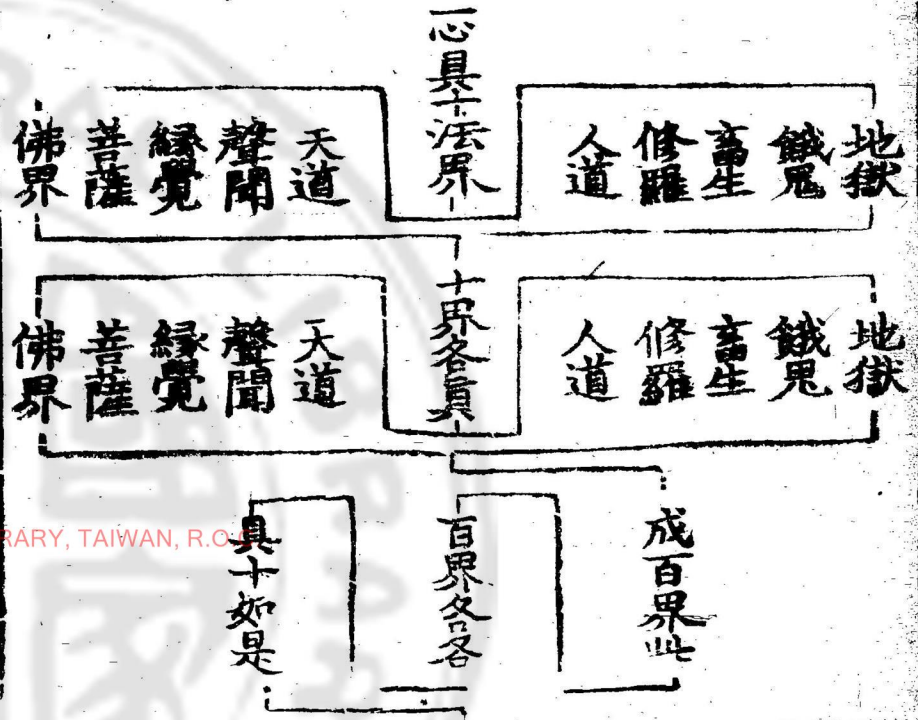 一心具十法界
地獄
餓鬼
畜生
修羅
人道
天道
聲聞
緣覺
菩薩
佛界
十界各具
地獄
餓鬼
畜生
修羅
人道
天道
聲聞
緣覺
菩薩
佛界
成百界此
百界各各
具十如是
RARY, TAIWAN, R.O.C